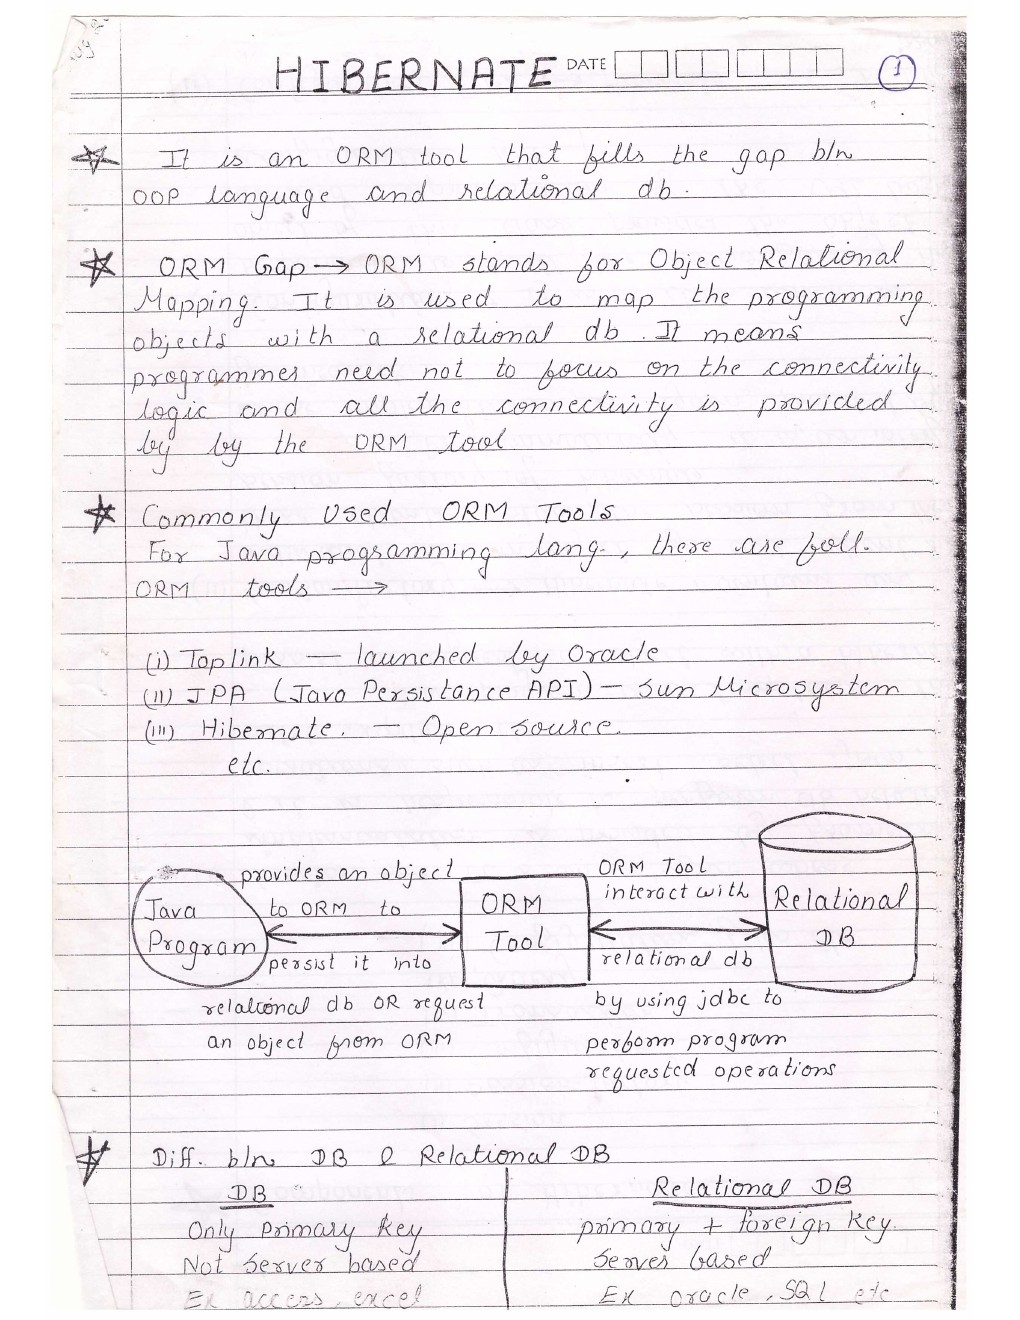 HIBERNATE DATE 1
It is an ORM tool that fills the gap b/n
OOP language and relational db.
ORM Gap → ORM stands for Object Relational
Mapping. It is used to map the programming
objects with a relational db. It means
programmer need not to focus on the connectivity
logic and all the connectivity is provided
by by the ORM tool
Commonly Used ORM Tools
For Java programming lang., there are foll.
ORM tools →
(i) Toplink — launched by Oracle
(ii) JPA (Java Persistance API) — Sun Microsystem
(iii) Hibernate. — Open source.
etc.
Java
Program
provides an object
to ORM to
persist it into
relational db OR request
an object from ORM
ORM
Tool
ORM Tool
interact with
relational db
by using jdbc to
perform program
requested operations
Relational
DB
Diff. b/n DB & Relational DB
DB
Only Primary Key
Not Server based
Ex access, excel
Relational DB
primary + foreign key.
Server based
Ex Oracle, SQL etc